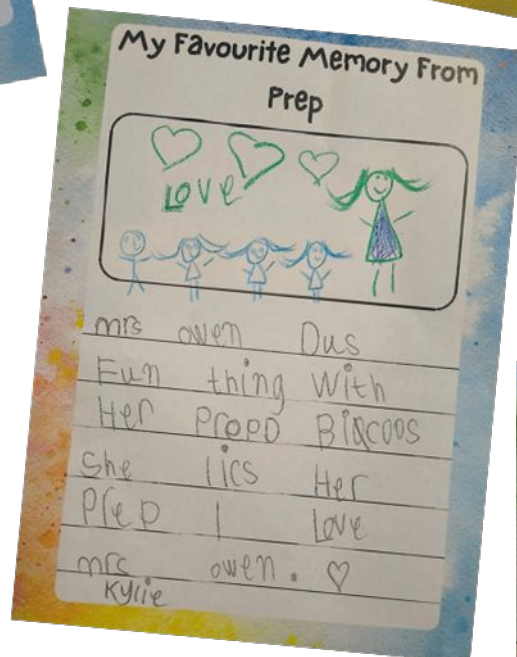 My Favourite Memory From
Prep
Love
mrs owen Dus
Fun thing with
Her Prepp Biqcoos
She lics Her
Prep I Love
mrs owen. ♡
Kylie